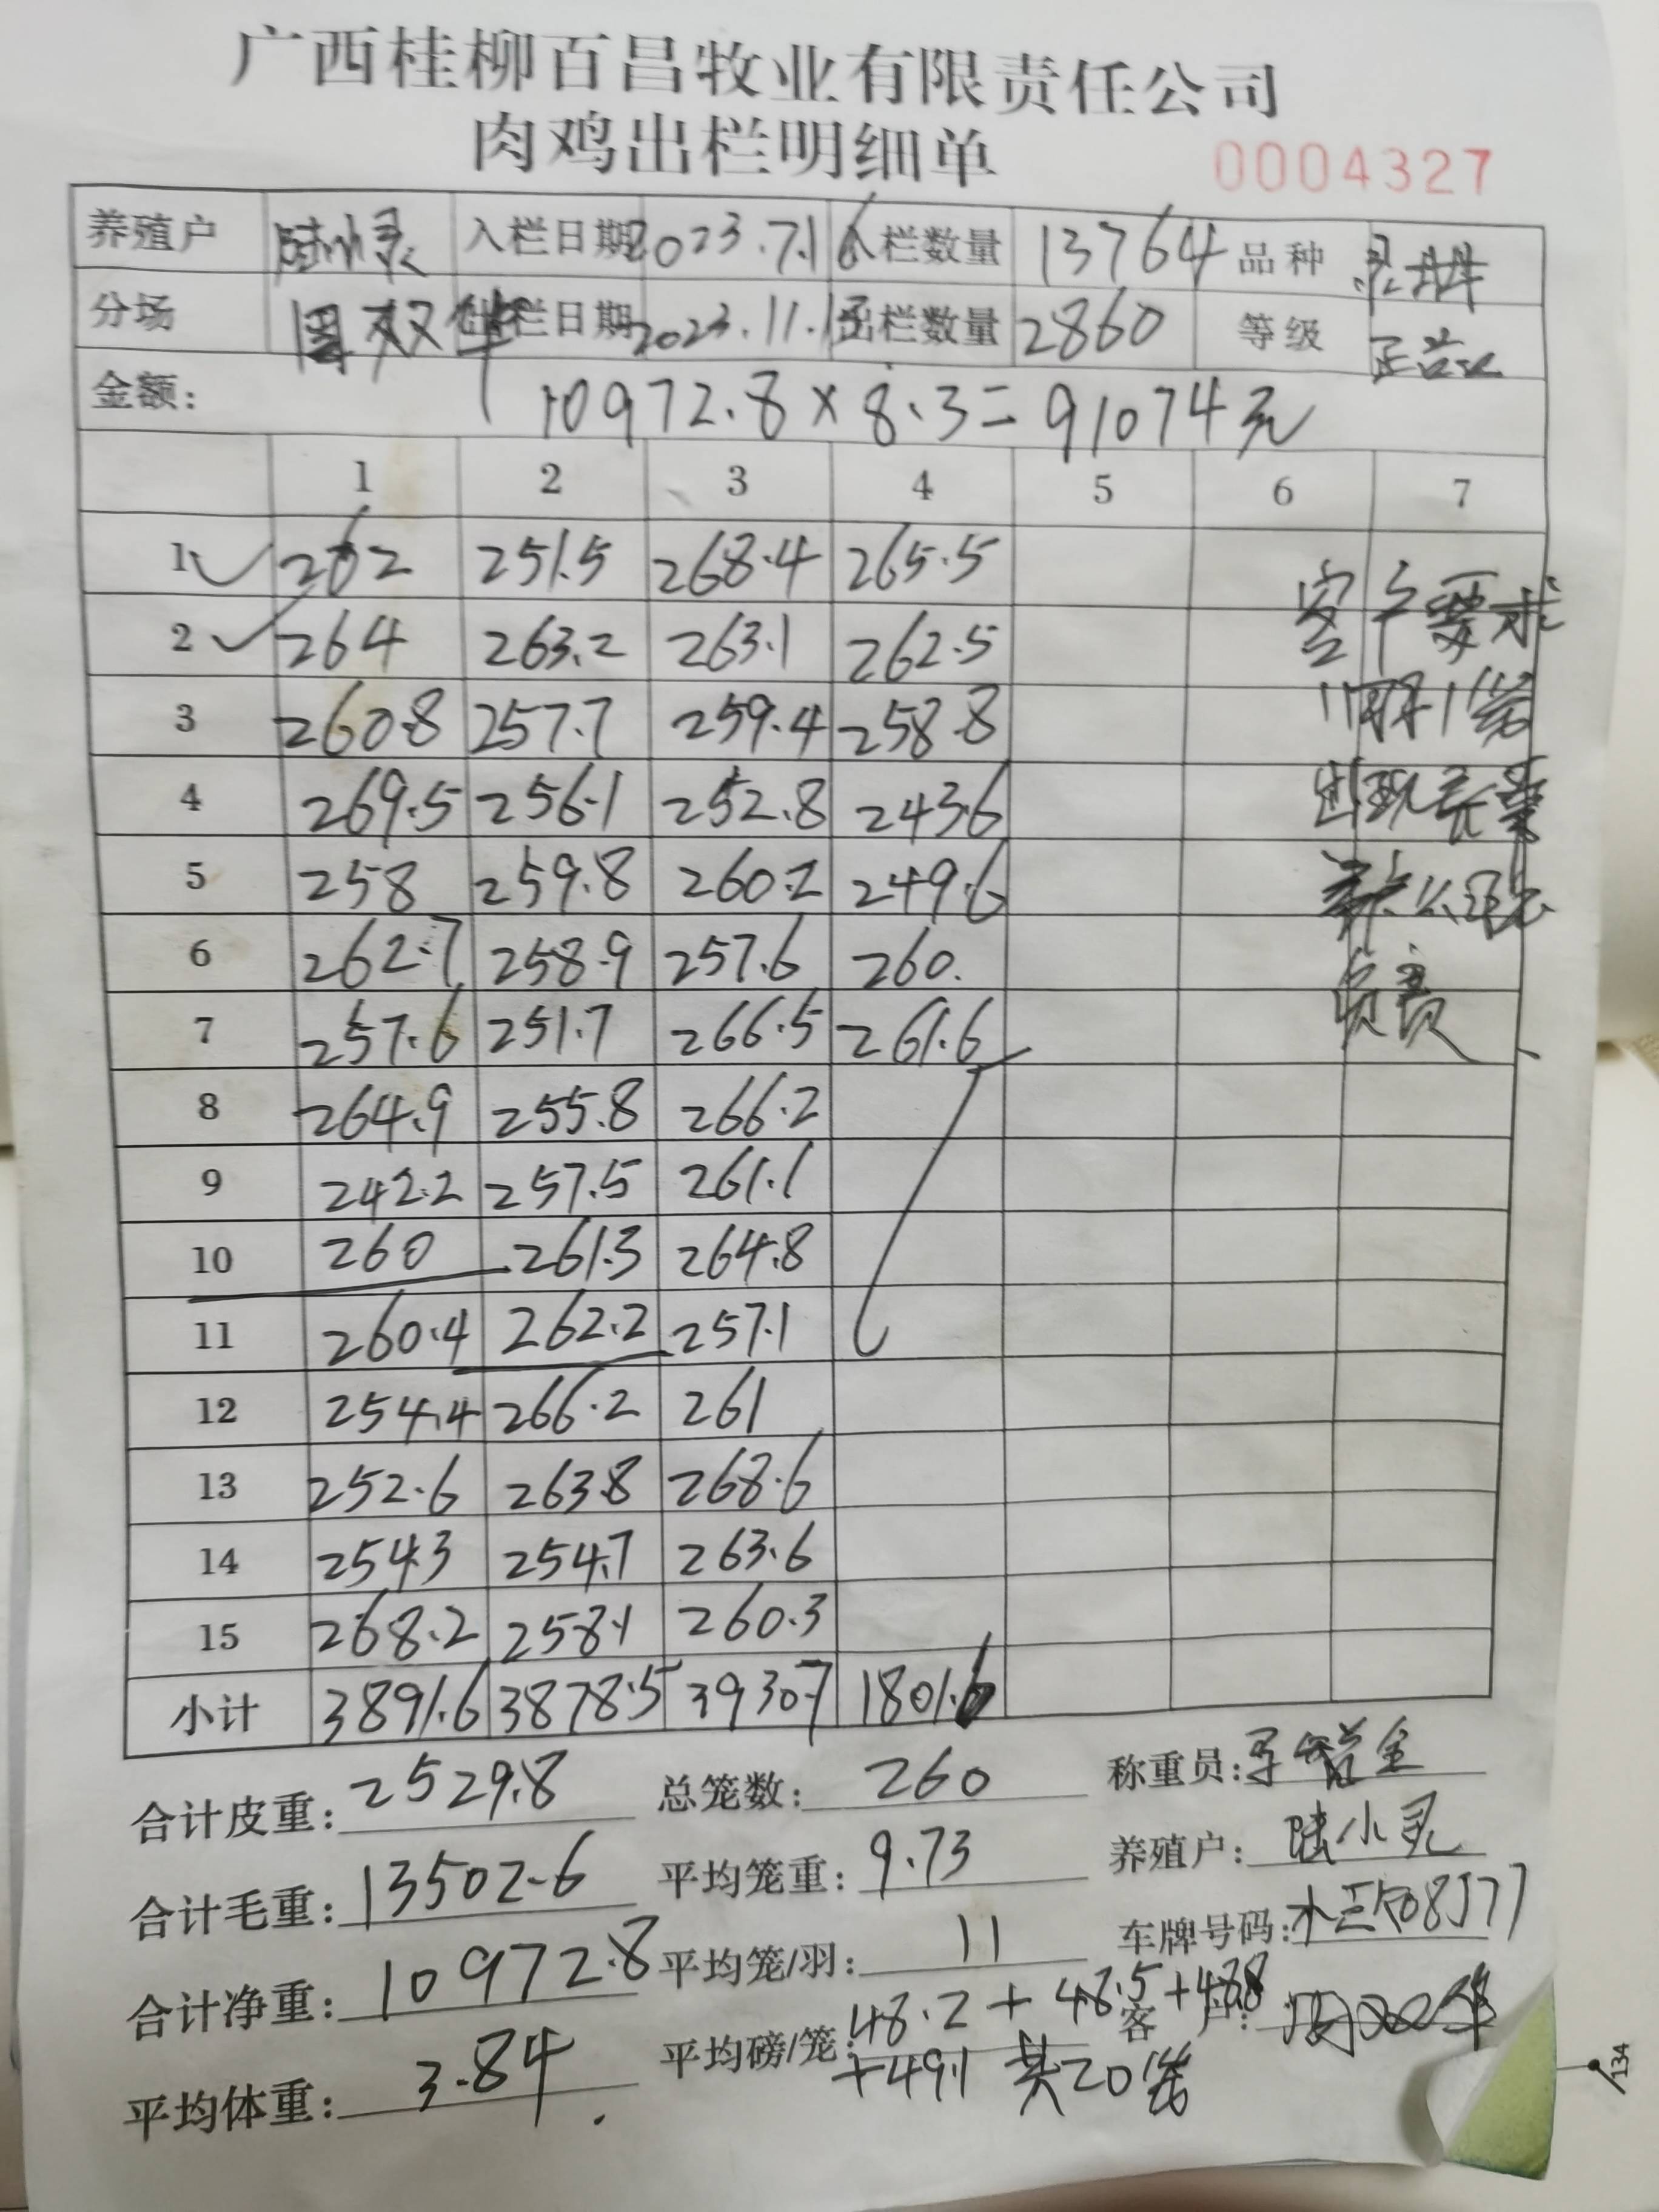 广西桂柳百昌牧业有限责任公司
肉鸡出栏明细单 0004327
养殖户 入栏日期 2023.7.16 入栏数量 13764 品种
分场 周双华 出栏日期 2023.11.15 出栏数量 2860 等级
金额: 10972.8×8.3=91074元
1 2 3 4 5 6 7
1 262 251.5 268.4 265.5 客户要求
2 264 263.2 263.1 262.5
3 260.8 257.7 259.4 258.8 11羽1笼
4 269.5 256.1 252.8 243.6 出现
5 258 259.8 260.2 249.6
6 262.7 258.9 257.6 260. 负责
7 257.6 251.7 266.5 261.6
8 264.9 255.8 266.2
9 242.2 257.5 261.1
10 260 261.3 264.8
11 260.4 262.2 257.1
12 254.4 266.2 261
13 252.6 263.8 268.6
14 254.3 254.7 263.6
15 268.2 258.1 260.3
小计 3891.6 3878.5 3930.7 1801.6
合计皮重: 2529.8 总笼数: 260 称重员:
合计毛重: 13502.6 平均笼重: 9.73 养殖户: 陆小灵
合计净重: 10972.8 平均笼/羽: 11 车牌号码:
平均体重: 3.84 平均磅/笼: 48.2+48.5+48.8 客户: 周双华
+49.1 共20笼
134